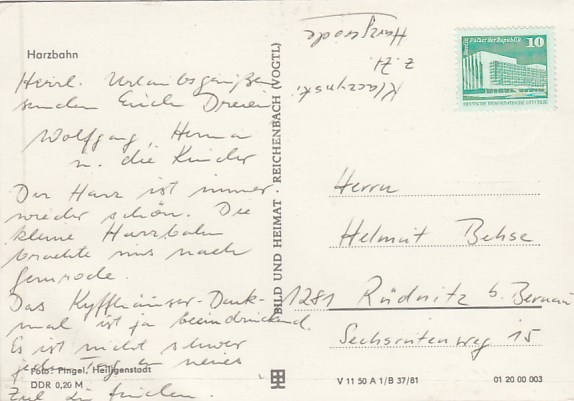 Harzbahn
Herzl. Urlaubsgrüße
senden Euch Dreien
Wolfgang, Herma
u. die Kinder
Der Harz ist immer
wieder schön. Die
kleine Harzbahn
brachte uns nach
Gernrode.
Das Kyffhäuser-Denk-
mal ist ja beeindruckend.
Es ist nicht schwer
jeden Tag ein neues
Ziel zu finden.
Foto: Pingel, Heiligenstadt
DDR 0,20 M
BILD UND HEIMAT · REICHENBACH (VOGTL)
Klaczynski
z. Zt.
Harzgerode
Palast der Republik 10
DEUTSCHE DEMOKRATISCHE REPUBLIK
Herrn
Helmut Behse
1281 Rüdnitz b. Bernau
Sechsrutenweg 15
V 11 50 A 1/B 37/81
01 20 00 003